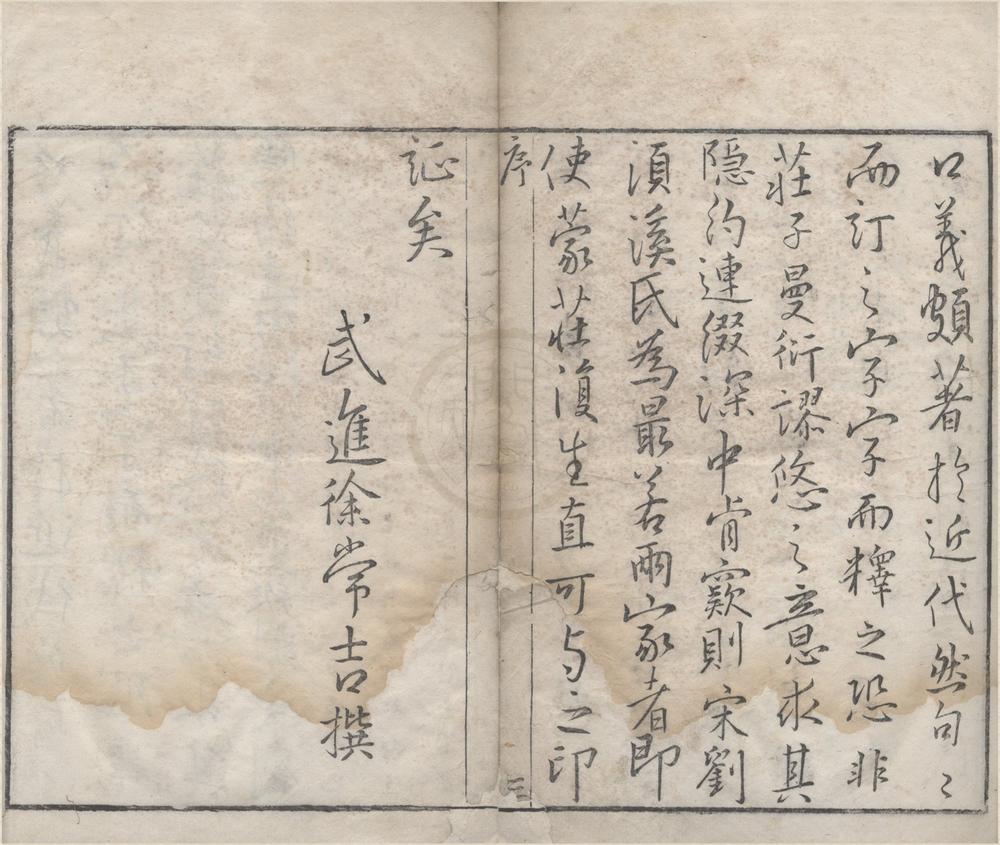 口義頗著扵近代然句〻
而訂之字字而釋之恐非
莊子曼衍謬悠之意求其
隠約連綴深中肯窾則宋劉
湏溪氏為最若兩家者即
使蒙莊復生直可与之印
序
三
証矣
武進徐常吉撰